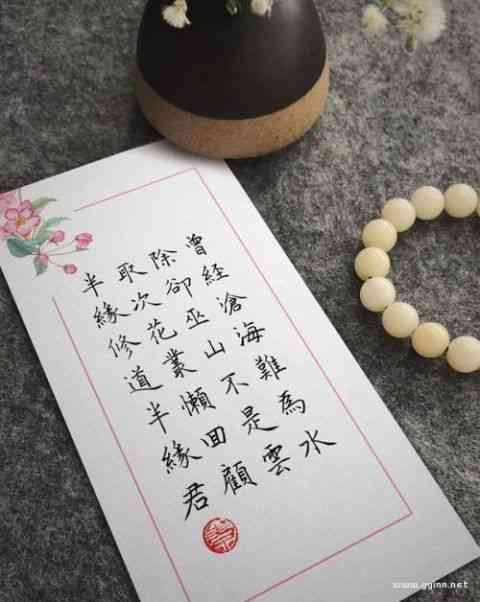 曾經滄海難為水
除卻巫山不是雲
取次花叢懶回顧
半緣修道半緣君
www.gginn.net